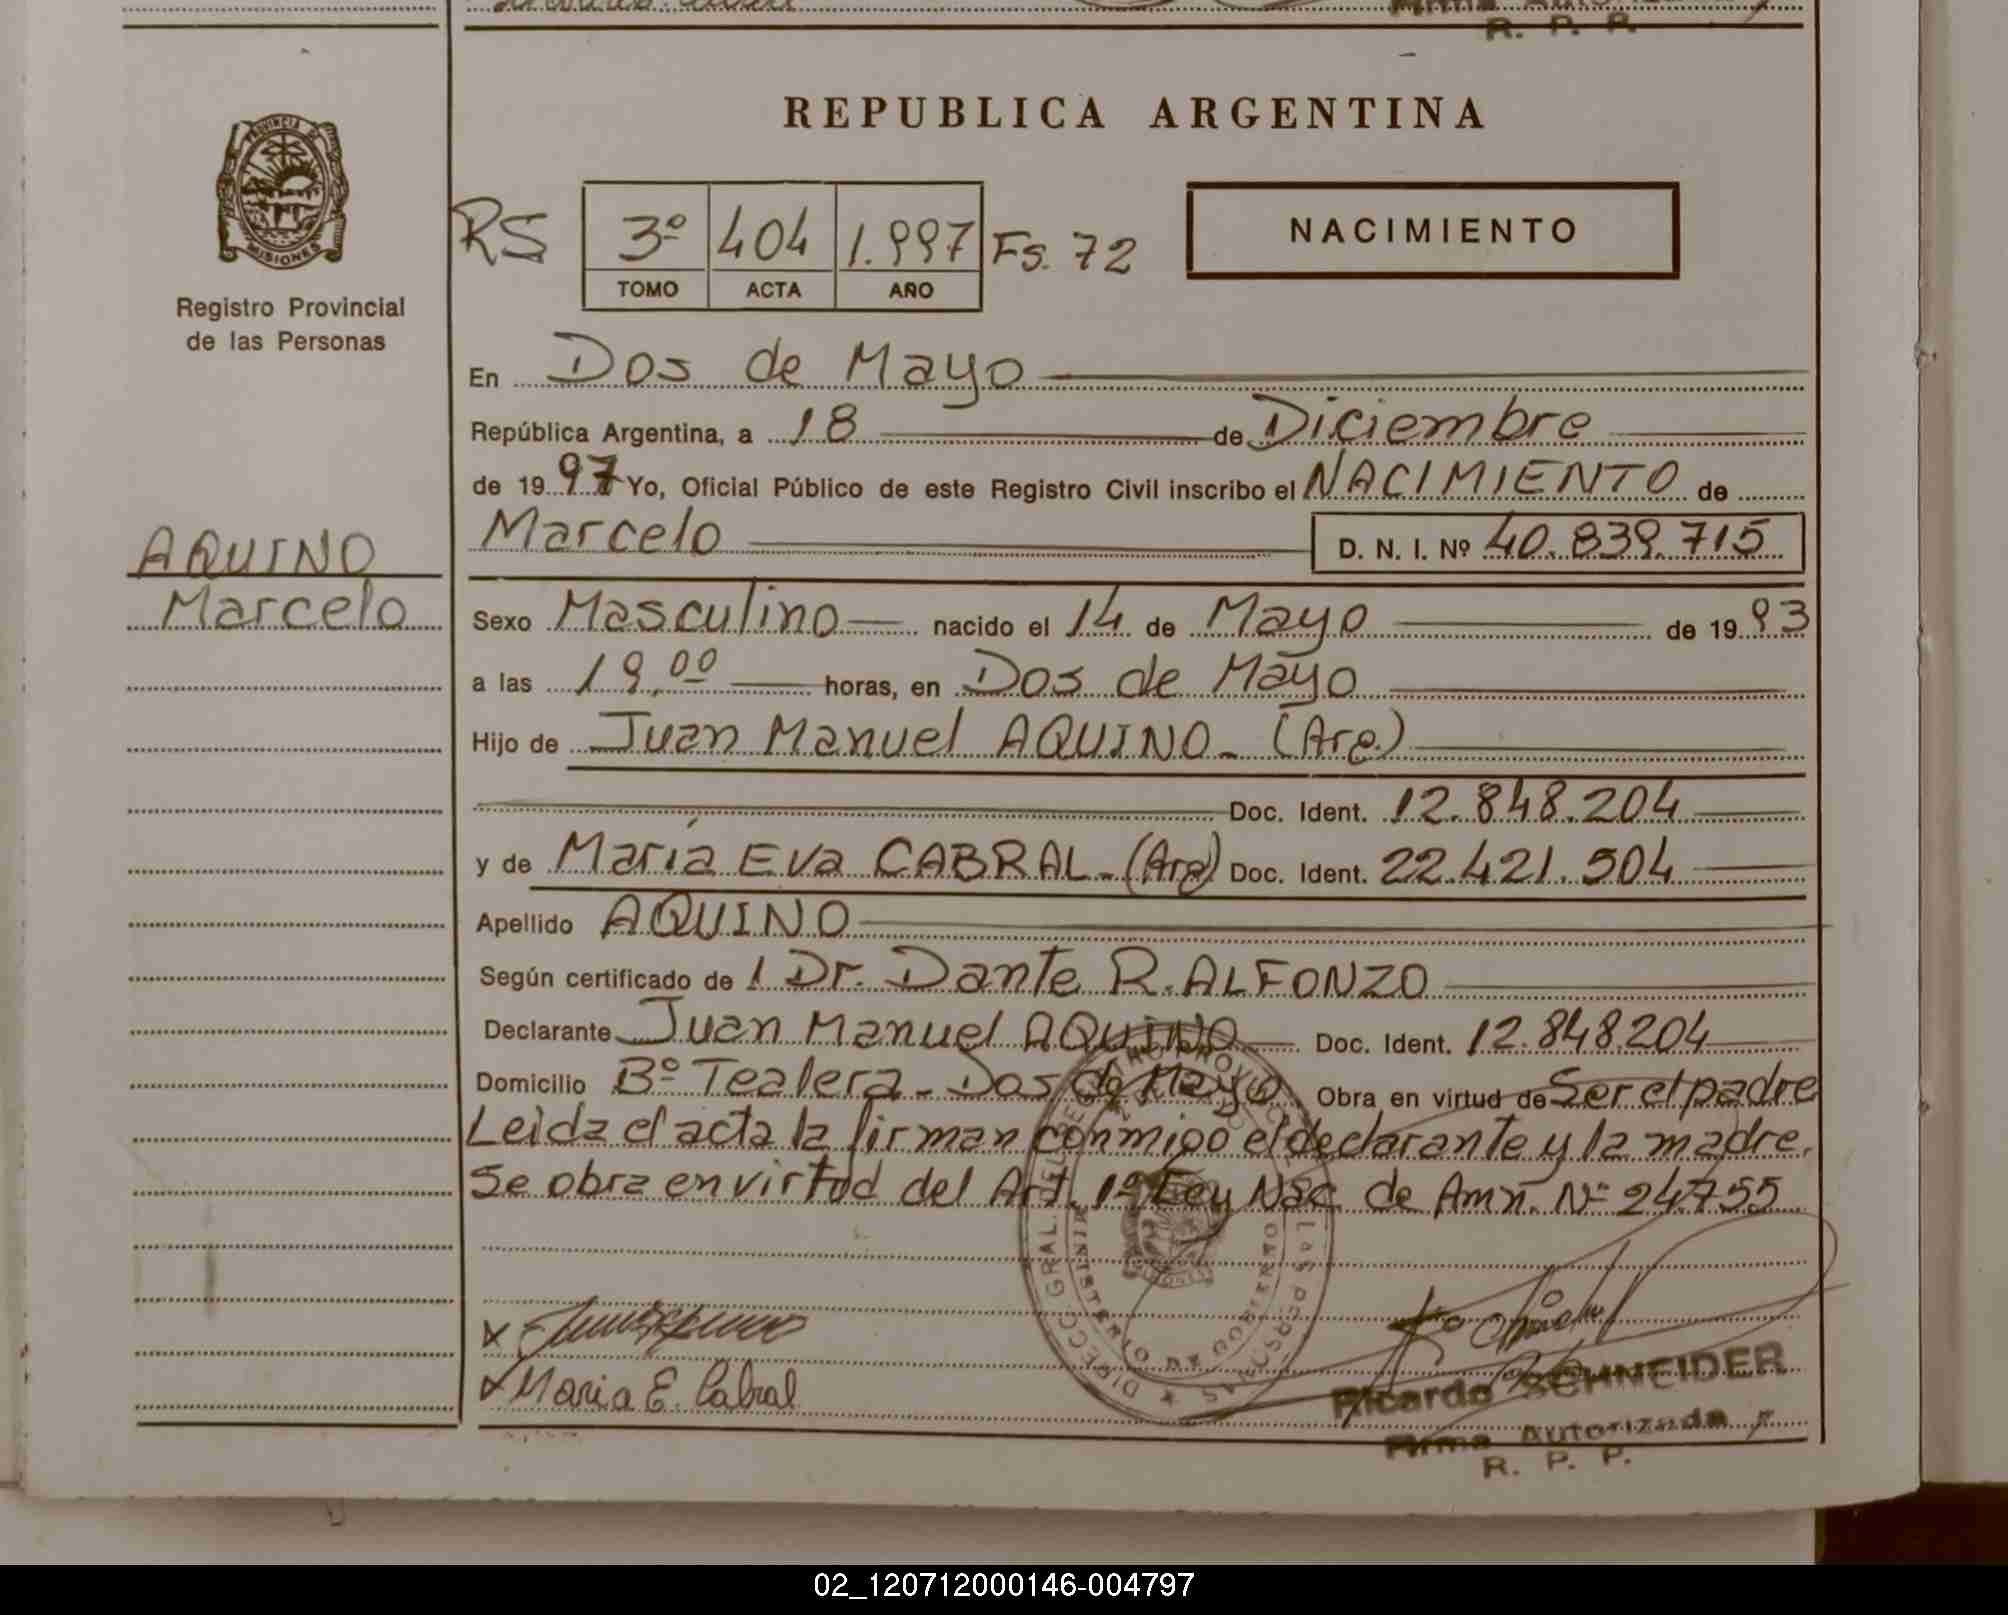 R. P. P.
PROVINCIA DE
MISIONES
Registro Provincial
de las Personas
REPUBLICA ARGENTINA
RS 3º 404 1.997 Fs. 72
TOMO ACTA AÑO
NACIMIENTO
En Dos de Mayo
República Argentina, a 18 de Diciembre
de 1997 Yo, Oficial Público de este Registro Civil inscribo el NACIMIENTO de
AQUINO
Marcelo
Marcelo D. N. I. Nº 40.839.715
Sexo Masculino nacido el 14 de Mayo de 1993
a las 19,00 horas, en Dos de Mayo
Hijo de Juan Manuel AQUINO - (Arg.)
Doc. Ident. 12.848.204
y de María Eva CABRAL - (Arg) Doc. Ident. 22.421.504
Apellido AQUINO
Según certificado de l Dr. Dante R. ALFONZO
Declarante Juan Manuel AQUINO Doc. Ident. 12.848.204
Domicilio Bº Tealera - Dos de Mayo Obra en virtud de Ser el padre
Leida el acta la firman conmigo el declarante y la madre.
Se obra en virtud del Art. 1º Ley Nac. de Amn. Nº 24.755
x
x Maria E. Cabral
Ricardo SCHNEIDER
Firma Autorizada
R. P. P.
02_120712000146-004797